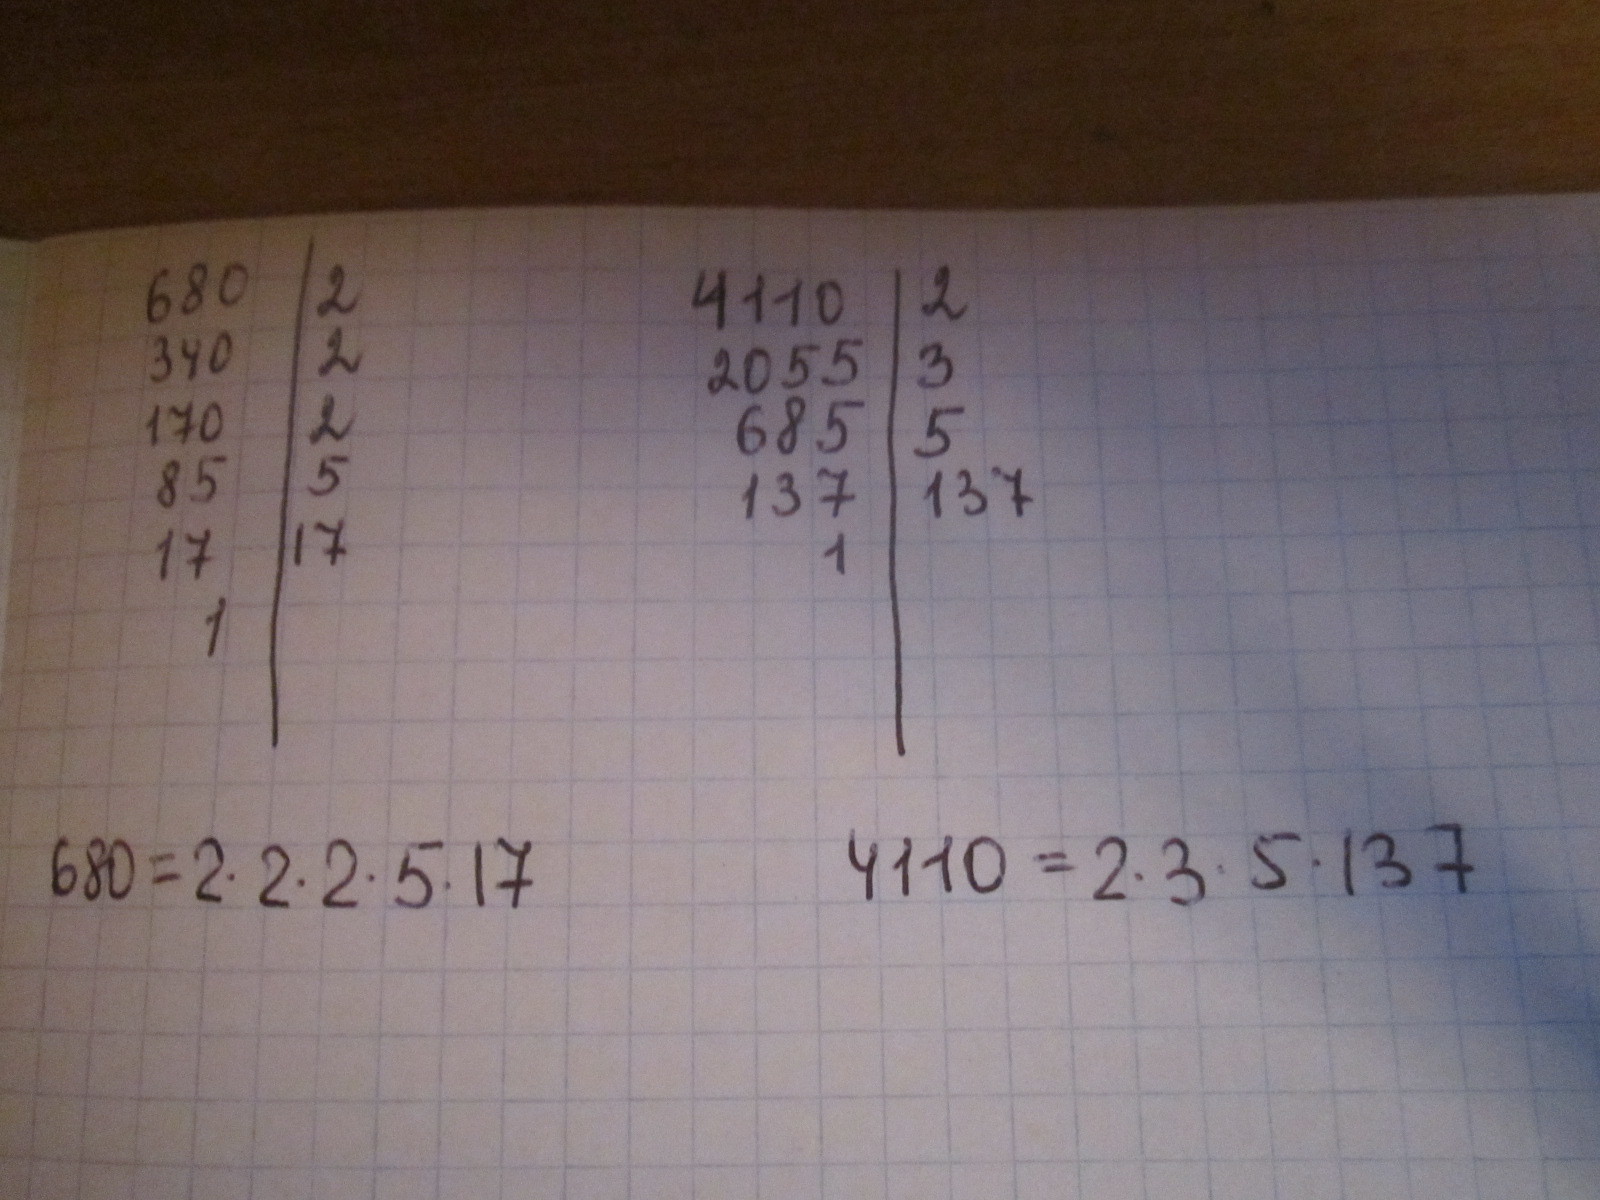 680 | 2
340 | 2
170 | 2
85 | 5
17 | 17
1 |
4110 | 2
2055 | 3
685 | 5
137 | 137
1 |
680 = 2 · 2 · 2 · 5 · 17
4110 = 2 · 3 · 5 · 137